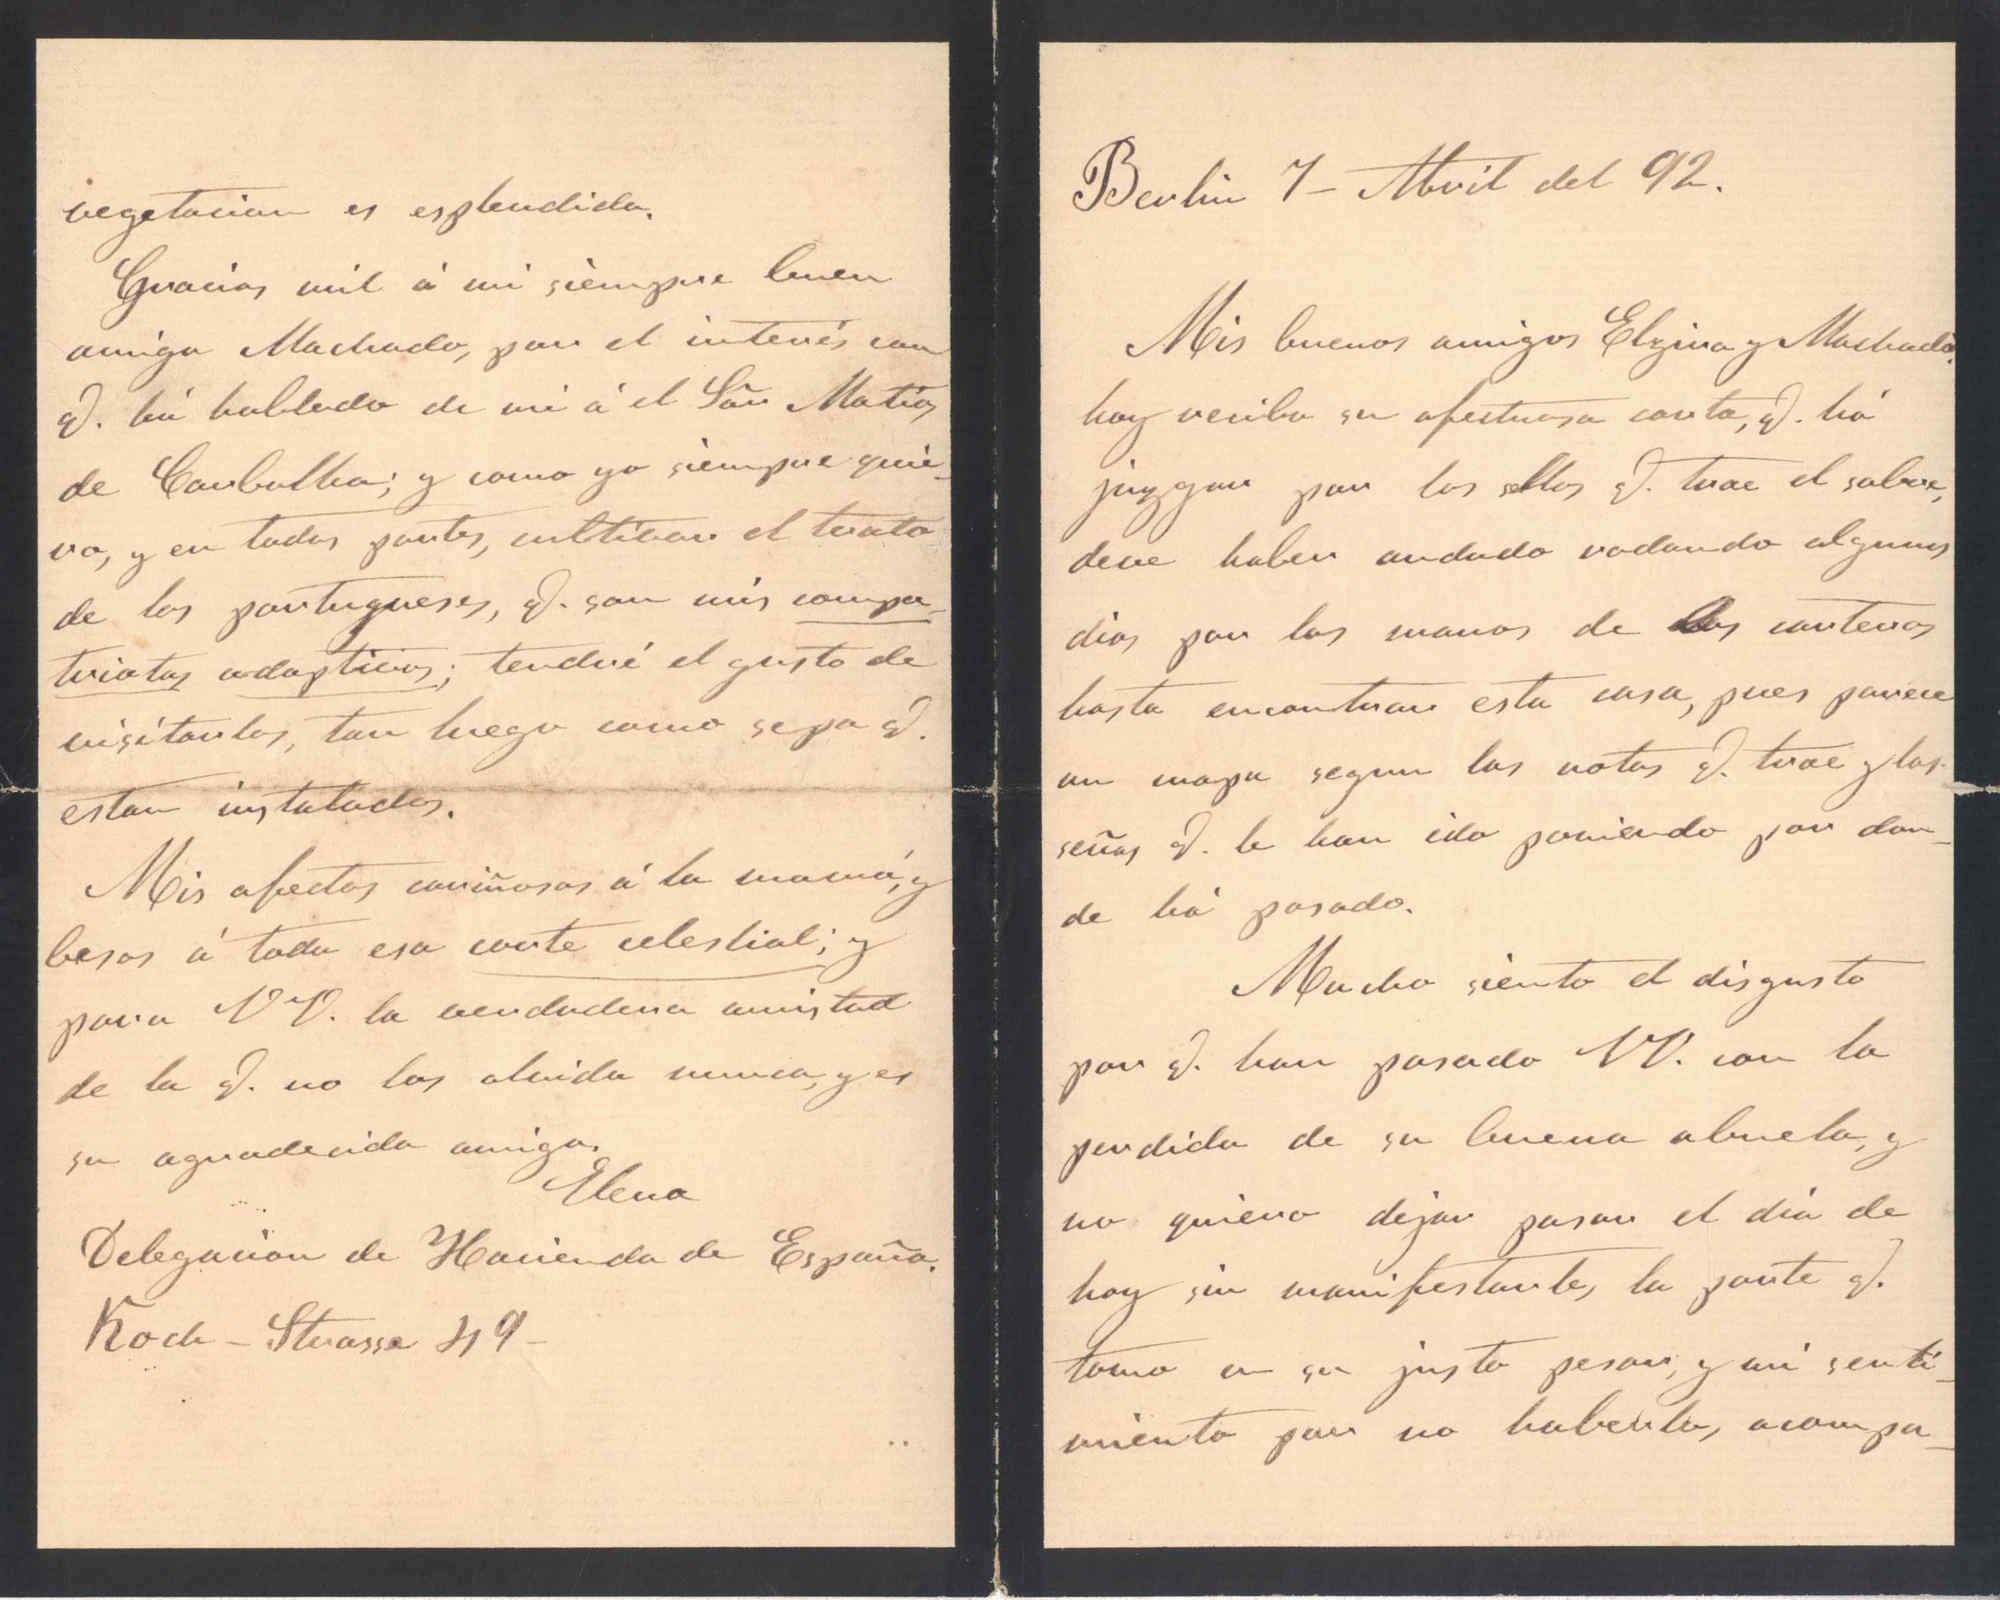 Berlin 7- Abril del 92.
Mis buenos amigos Elzira y Machado,
hoy recibo su afectuosa carta, q. há
juzgar por los sellos q. trae el sobre,
deve haber andado rodando algunos
dias por las manos de los carteros
hasta encontrar esta casa, pues parece
un mapa segun las notas q. trae y las
señas q. le han ido poniendo por don-
de há pasado.
Mucho siento el disgusto
por q. han pasado VV. con la
perdida de su buena abuela, y
no quiero dejar pasar el dia de
hoy sin manifestarles, la parte q.
tomo en su justo pesar, y mi senti-
miento por no haberlos, acompa-
vegetacion es esplendida.
Gracias mil á mi siempre buen
amigo Machado, por el interés con
q. há hablado de mi á el Sõr Matias
de Carbalho; y como yo siempre quie-
ro, y en todas partes, cultivar el trato
de los portugueses, q. son mis compa-
triotas adopticios; tendré el gusto de
visitarlos, tan luego como sepa q.
estan instalados.
Mis afectos cariñosos á la mamá, y
besos á toda esa corte celestial; y
para VV. la verdadera amistad
de la q. no los olvida nunca, y es
su agradecida amiga.
Elena
Delegacion de Hacienda de España.
Koch-Strasse 49-